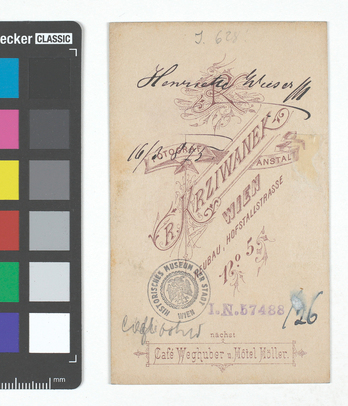 ecker CLASSIC
J. 628.
Henriette Wieser
K
16/3
ANSTALT
R. KRZIWANEK
WIEN
NEUBAU, HOFSTALLSTRASSE
No 5.
HISTORISCHES MUSEUM DER STADT WIEN
I.N. 57488/26
nächst
Café Weghuber u. Hôtel Höller.
mm